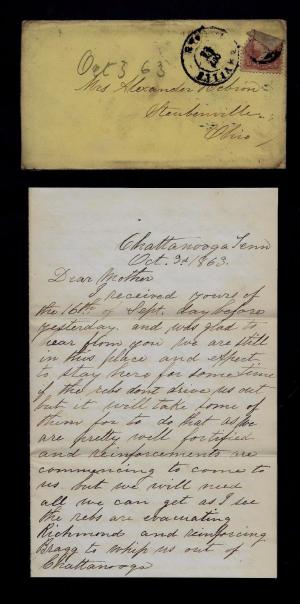 Oct 3 63
Mrs Alexander
Steubenville
Ohio
Chattanooga Tenn
Oct. 3d 1863.
Dear Mother
I received yours of
the 16th of Sept. day before
yesterday. and was glad to
hear from you we are still
in this place and expect
to stay here for some time
if the rebs dont drive us out
but it will take some of
them for to do that as we
are pretty well fortified
and reinforcements are
commencing to come to
us. but we will need
all we can get as I see
the rebs are evacuating
Richmond and reinforcing
Bragg to whip us out of
Chattanooga